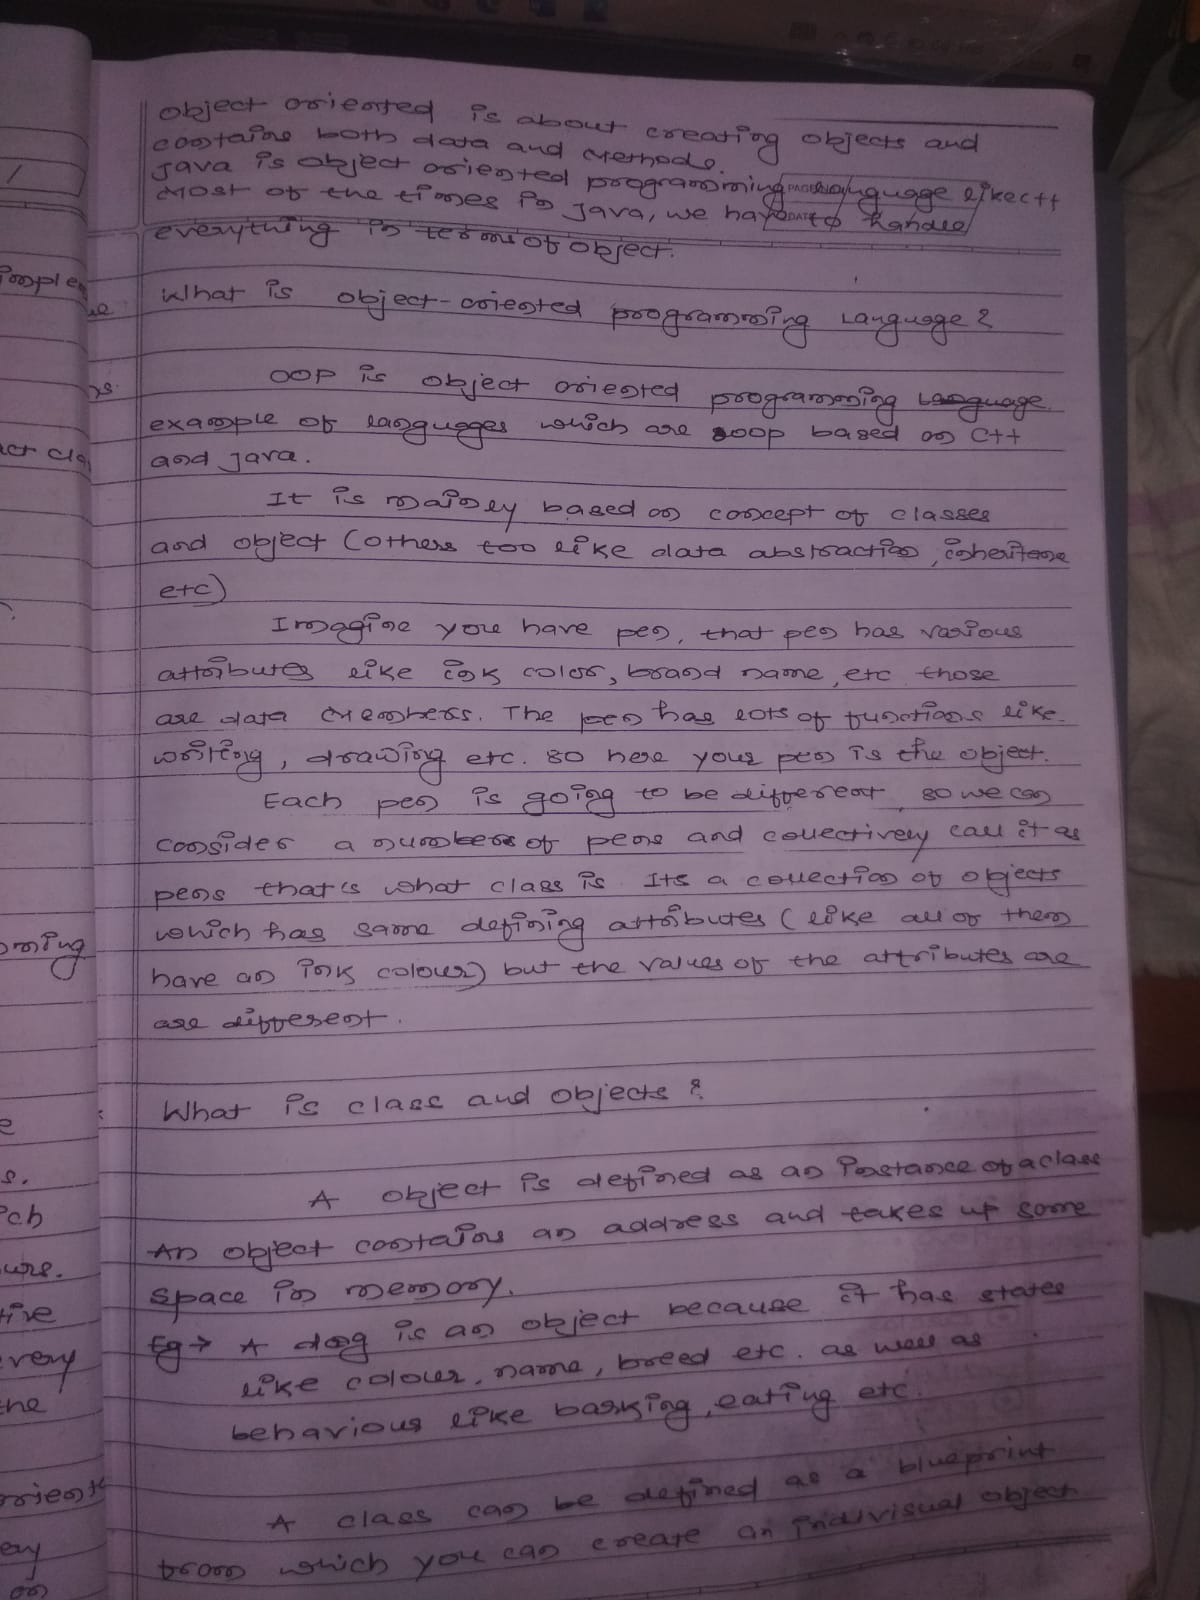 object oriented is about creating objects and
contains both data and methods.
Java is object oriented programming language like c++
Most of the times in Java, we have to handle
everything in terms of object.
What is object-oriented programming Language?
OOP is object oriented programming language.
example of languages which are oop based on C++
and Java.
It is mainly based on concept of classes
and object (others too like data abstraction, inheritance
etc)
Imagine you have pen, that pen has various
attributes like ink color, brand name, etc those
are data members. The pen has lots of functions like
writing, drawing etc. so here your pen is the object.
Each pen is going to be different, so we can
consider a number of pens and collectively call it as
pens that's what class is. Its a collection of objects
which has same defining attributes (like all of them
have an ink colour) but the values of the attributes are
are different.
What is class and objects?
A object is defined as an instance of a class
An object contains an address and takes up some
space in memory.
Eg → A dog is an object because it has states
like colour, name, breed etc. as well as
behaviour like barking, eating etc.
A class can be defined as a blueprint
from which you can create an indivisual object